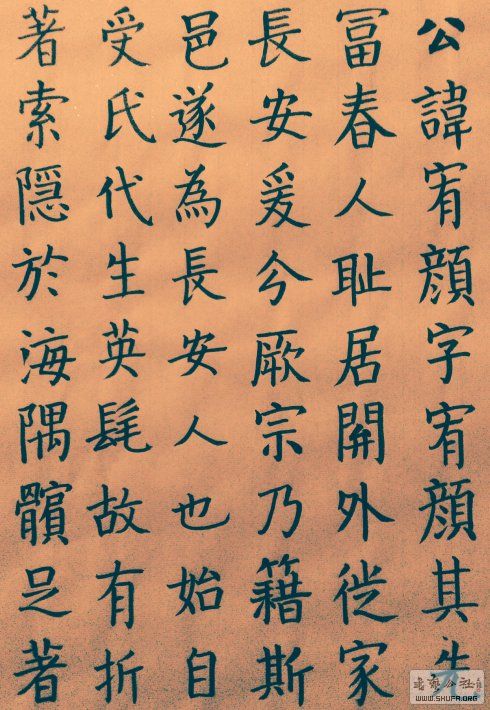 公諱宥顏字宥顏其先
冨春人耻居關外徙家
長安爰分厥宗乃籍斯
邑遂為長安人也始自
受氏代生英髦故有折
著索隱於海隅髕足著
WWW.SHUFA.ORG